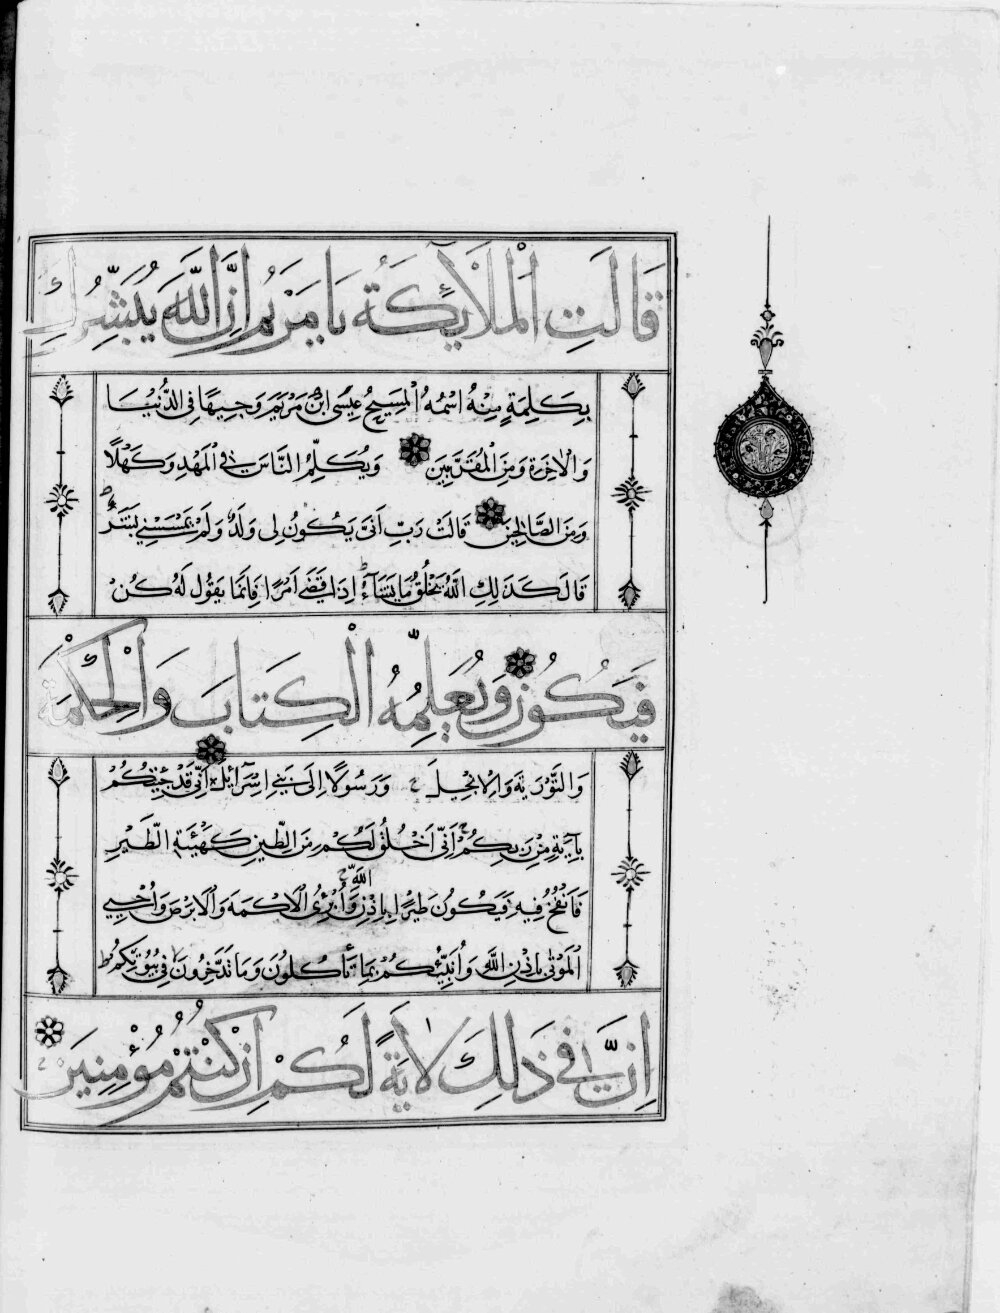 قَالَتِ الْمَلَآئِكَةُ يَا مَرْيَمُ اِنَّ اللّٰهَ يُبَشِّرُكِ
بِكَلِمَةٍ مِنْهُ اسْمُهُ الْمَسِيحُ عِيسَى ابْنُ مَرْيَمَ وَجِيهًا فِي الدُّنْيَا
وَالْاٰخِرَةِ وَمِنَ الْمُقَرَّبِينَ وَيُكَلِّمُ النَّاسَ فِي الْمَهْدِ وَكَهْلًا
وَمِنَ الصَّالِحِينَ قَالَتْ رَبِّ اَنّٰى يَكُونُ لِي وَلَدٌ وَلَمْ يَمْسَسْنِي بَشَرٌ
قَالَ كَذَلِكِ اللّٰهُ يَخْلُقُ مَا يَشَآءُ اِذَا قَضٰى اَمْرًا فَاِنَّمَا يَقُولُ لَهُ كُنْ
فَيَكُونُ وَيُعَلِّمُهُ الْكِتَابَ وَالْحِكْمَةَ
وَالتَّوْرٰيةَ وَالْاِنْجِيلَ وَرَسُولًا اِلٰى بَنِي اِسْرَآئِلَ اَنِّي قَدْ جِئْتُكُمْ
بِآيَةٍ مِنْ رَبِّكُمْ اَنِّي اَخْلُقُ لَكُمْ مِنَ الطِّينِ كَهَيْئَةِ الطَّيْرِ
فَاَنْفُخُ فِيهِ فَيَكُونُ طَيْرًا بِاِذْنِ اللّٰهِ وَاُبْرِئُ الْاَكْمَهَ وَالْاَبْرَصَ وَاُحْيِي
الْمَوْتٰى بِاِذْنِ اللّٰهِ وَاُنَبِّئُكُمْ بِمَا تَأْكُلُونَ وَمَا تَدَّخِرُونَ فِي بُيُوتِكُمْ ط
اِنَّ فِي ذَلِكَ لَاٰيَةً لَكُمْ اِنْ كُنْتُمْ مُؤْمِنِينَ